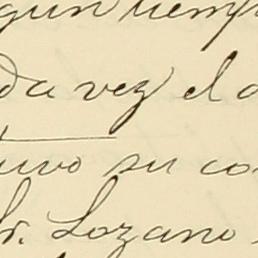 gun tiemp
da vez el a
uvo su co
Sr. Lozano